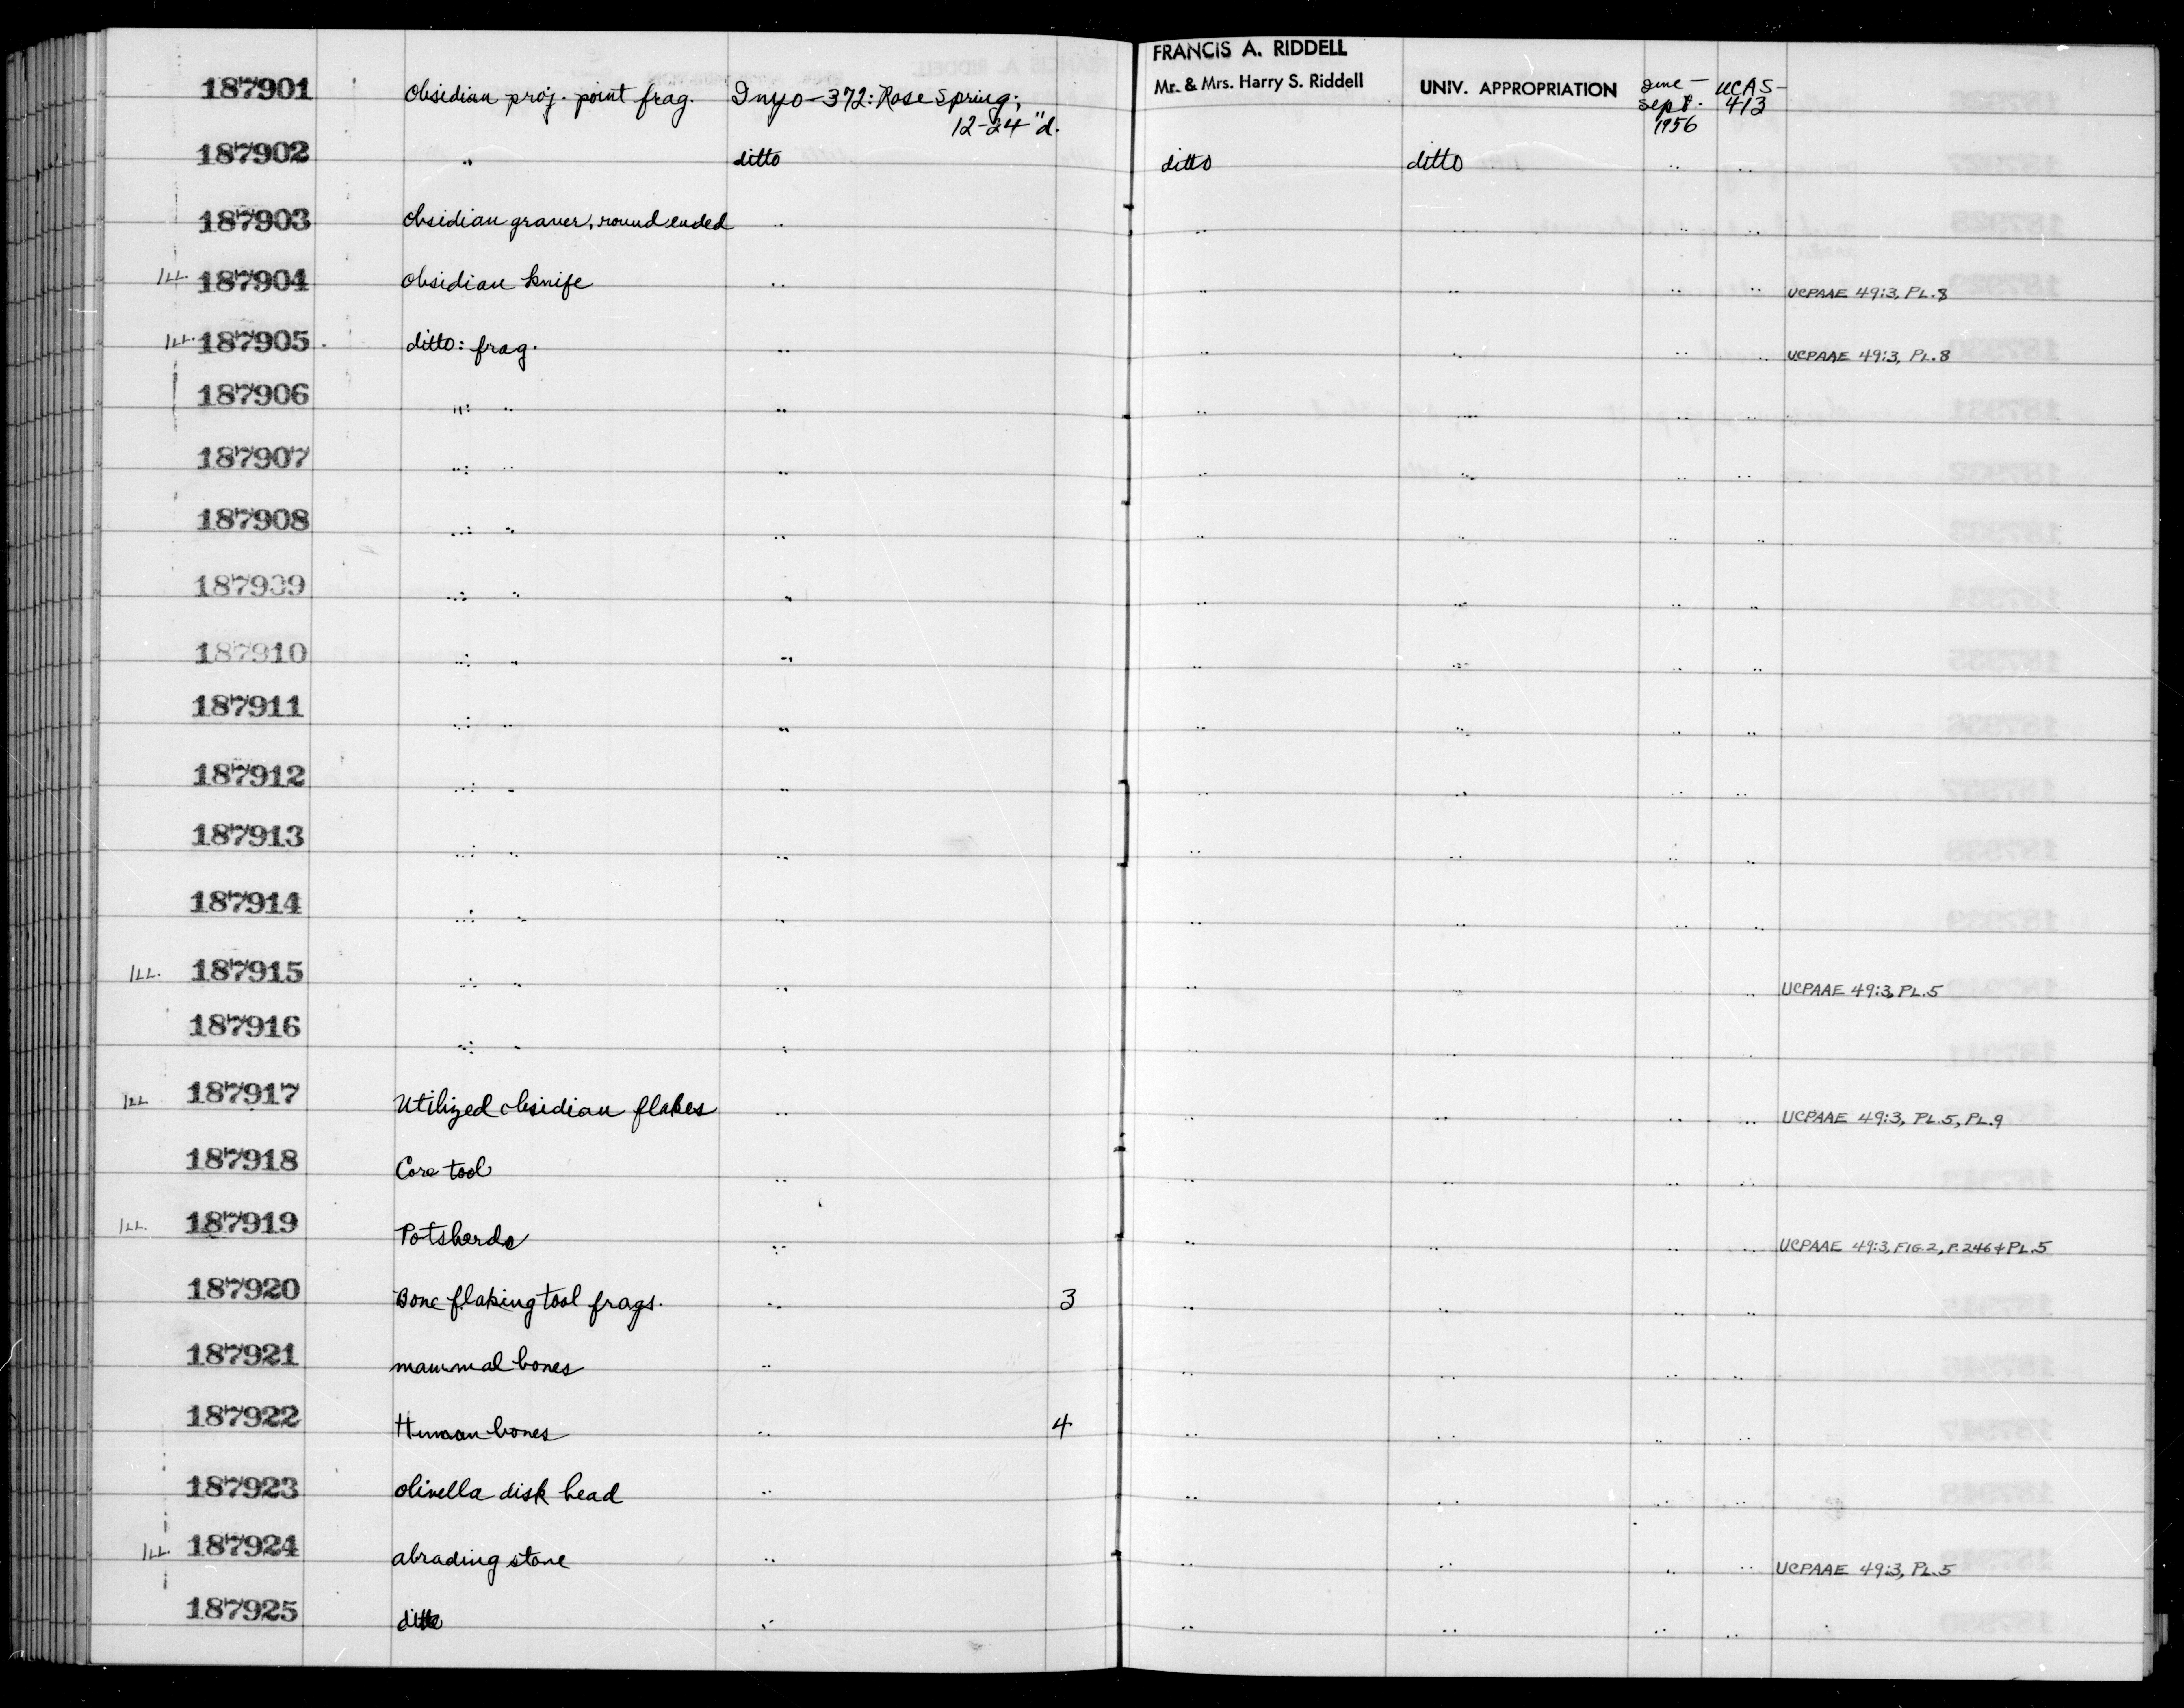 FRANCIS A. RIDDELL
187901 Obsidian proj. point frag. Inyo-372: Rose Spring; Mr. & Mrs. Harry S. Riddell UNIV. APPROPRIATION June- UCAS-
12-24"d. Sept. 413
1956
187902 " ditto ditto ditto " "
187903 Obsidian graver, round ended " " " " "
ILL. 187904 Obsidian knife " " " " " UCPAAE 49:3, PL.8
ILL. 187905 ditto: frag. " " " " " UCPAAE 49:3, PL.8
187906 ": " " " " " "
187907 ": " " " " " "
187908 ": " " " " " "
187909 ": " " " " " "
187910 ": " " " " " "
187911 ": " " " " " "
187912 ": " " " " " "
187913 ": " " " " " "
187914 ": " " " " " "
ILL. 187915 ": " " " " " " UCPAAE 49:3, PL.5
187916 ": " " " " " "
ILL 187917 Utilized obsidian flakes " " " " " UCPAAE 49:3, PL.5, PL.9
187918 Core tool " " " " "
ILL. 187919 Potsherds " " " " " UCPAAE 49:3, FIG.2, P.246 + PL.5
187920 Bone flaking tool frags. " 3 " " " "
187921 mammal bones " " " " "
187922 Human bones " 4 " " " "
187923 olivella disk bead " " " " "
ILL. 187924 abrading stone " " " " " UCPAAE 49:3, PL.5
187925 ditto " " " " "